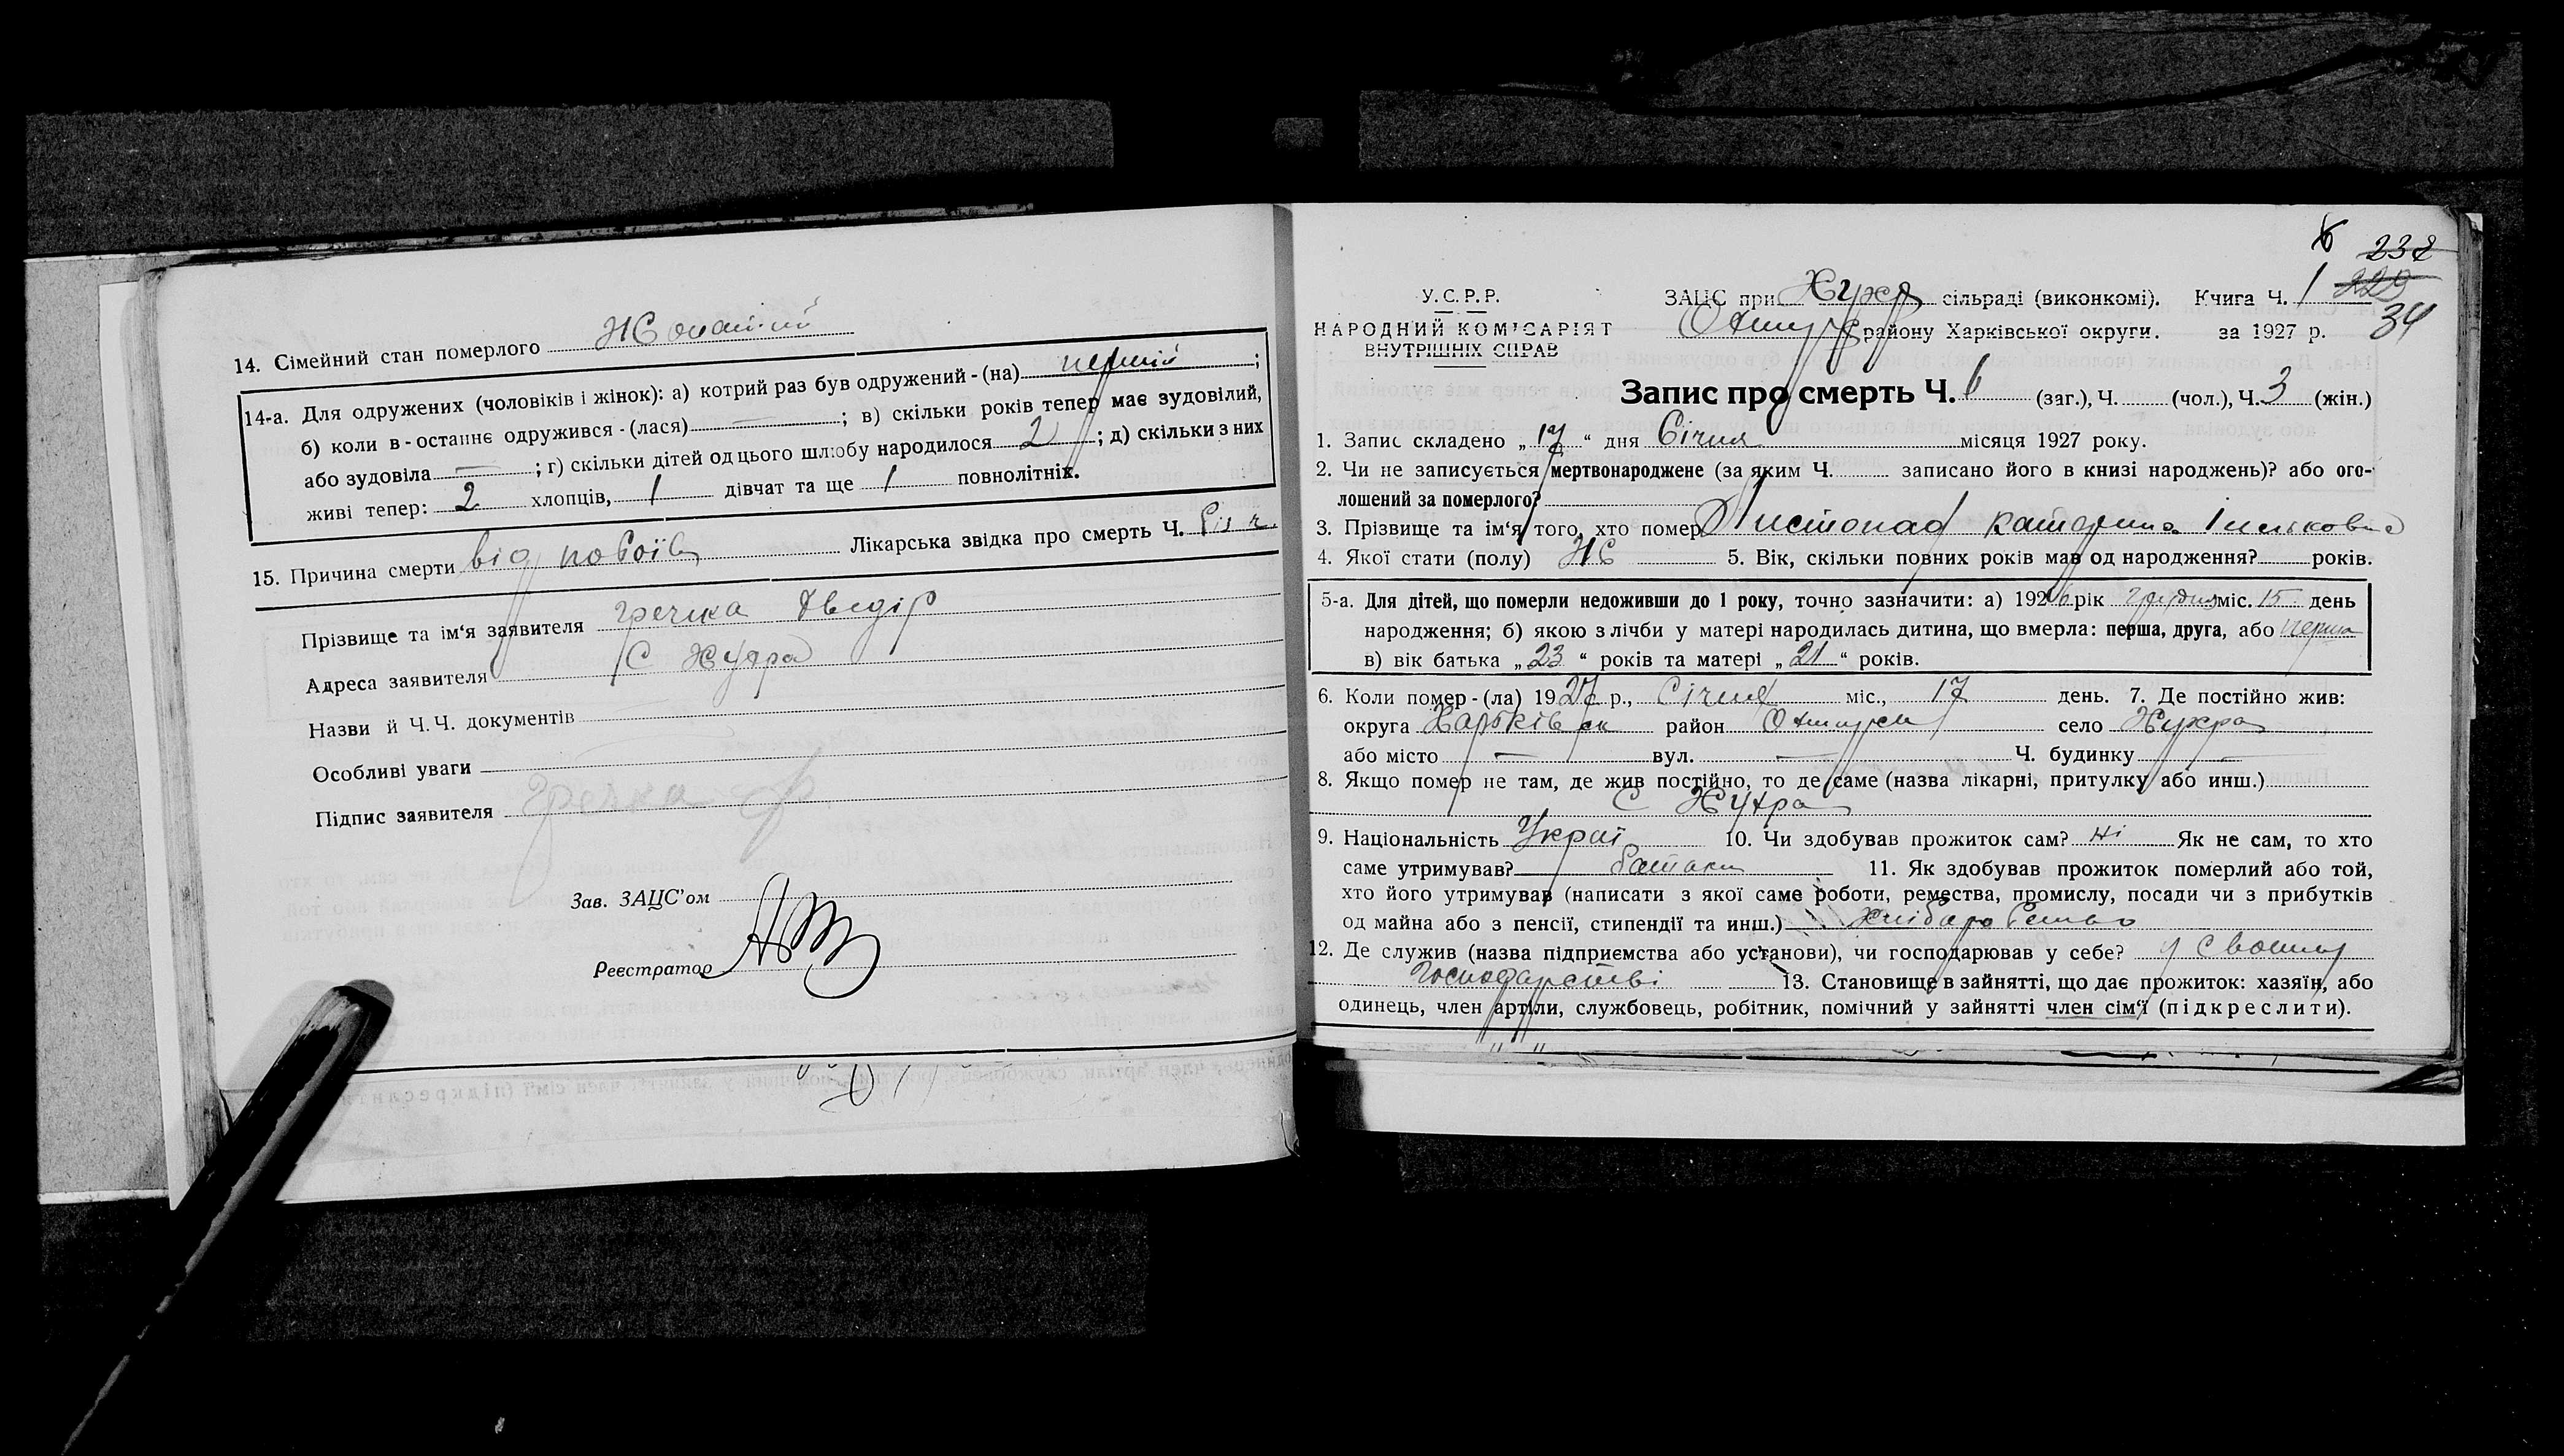 14. Сімейний стан померлого Жонатий
14-а. Для одружених (чоловіків і жінок): а) котрий раз був одружений - (на) перший ;
б) коли в - останнє одружився - (лася) — ; в) скільки років тепер має зудовілий,
або зудовіла — ; г) скільки дітей од цього шлюбу народилося 2 ; д) скільки з них
живі тепер: 2 хлопців, 1 дівчат та ще 1 повнолітніх.
15. Причина смерти від побоїв Лікарська звідка про смерть Ч.
Прізвище та ім'я заявителя гречка Хведір
Адреса заявителя С Хухра
Назви й Ч. Ч. документів
Особливі уваги
Підпис заявителя гречка
Зав. ЗАЦС'ом
Реєстратор
6 232
229
34
У. С. Р. Р.
НАРОДНИЙ КОМІСАРІЯТ
ВНУТРІШНІХ СПРАВ
ЗАЦС при Хухр сільраді (виконкомі). Книга Ч. 1
Охтирс району Харківської округи. за 1927 р.
Запис про смерть Ч. 6 (заг.), Ч. (чол.), Ч. 3 (жін.)
1. Запис складено „ 17 “ дня Січня місяця 1927 року.
2. Чи не записується мертвонароджене (за яким Ч. записано його в книзі народжень)? або ого-
лошений за померлого?
3. Прізвище та ім'я того, хто помер Листопад Катерина Ільковна
4. Якої стати (полу) Ж 5. Вік, скільки повних років мав од народження? років.
5-а. Для дітей, що померли недоживши до 1 року, точно зазначити: а) 1926 рік грудня міс. 15 день
народження; б) якою з лічби у матері народилась дитина, що вмерла: перша, друга, або перша
в) вік батька „ 23 “ років та матері „ 21 “ років.
6. Коли помер - (ла) 1927 р., Січня міс., 17 день. 7. Де постійно жив:
округа Харківськ район Охтирськ село Хухра
або місто — вул. — Ч. будинку —
8. Якщо помер не там, де жив постійно, то де саме (назва лікарні, притулку або инш.)
С Хухра
9. Національність Украї 10. Чи здобував прожиток сам? ні Як не сам, то хто
саме утримував? батьки 11. Як здобував прожиток померлий або той,
хто його утримував (написати з якої саме роботи, ремества, промислу, посади чи з прибутків
од майна або з пенсії, стипендії та инш.) хліборобство
12. Де служив (назва підприємства або установи), чи господарював у себе? у своему
господарстві 13. Становище в зайнятті, що дає прожиток: хазяїн, або
одинець, член артіли, службовець, робітник, помічний у зайнятті член сім'ї (підкреслити).